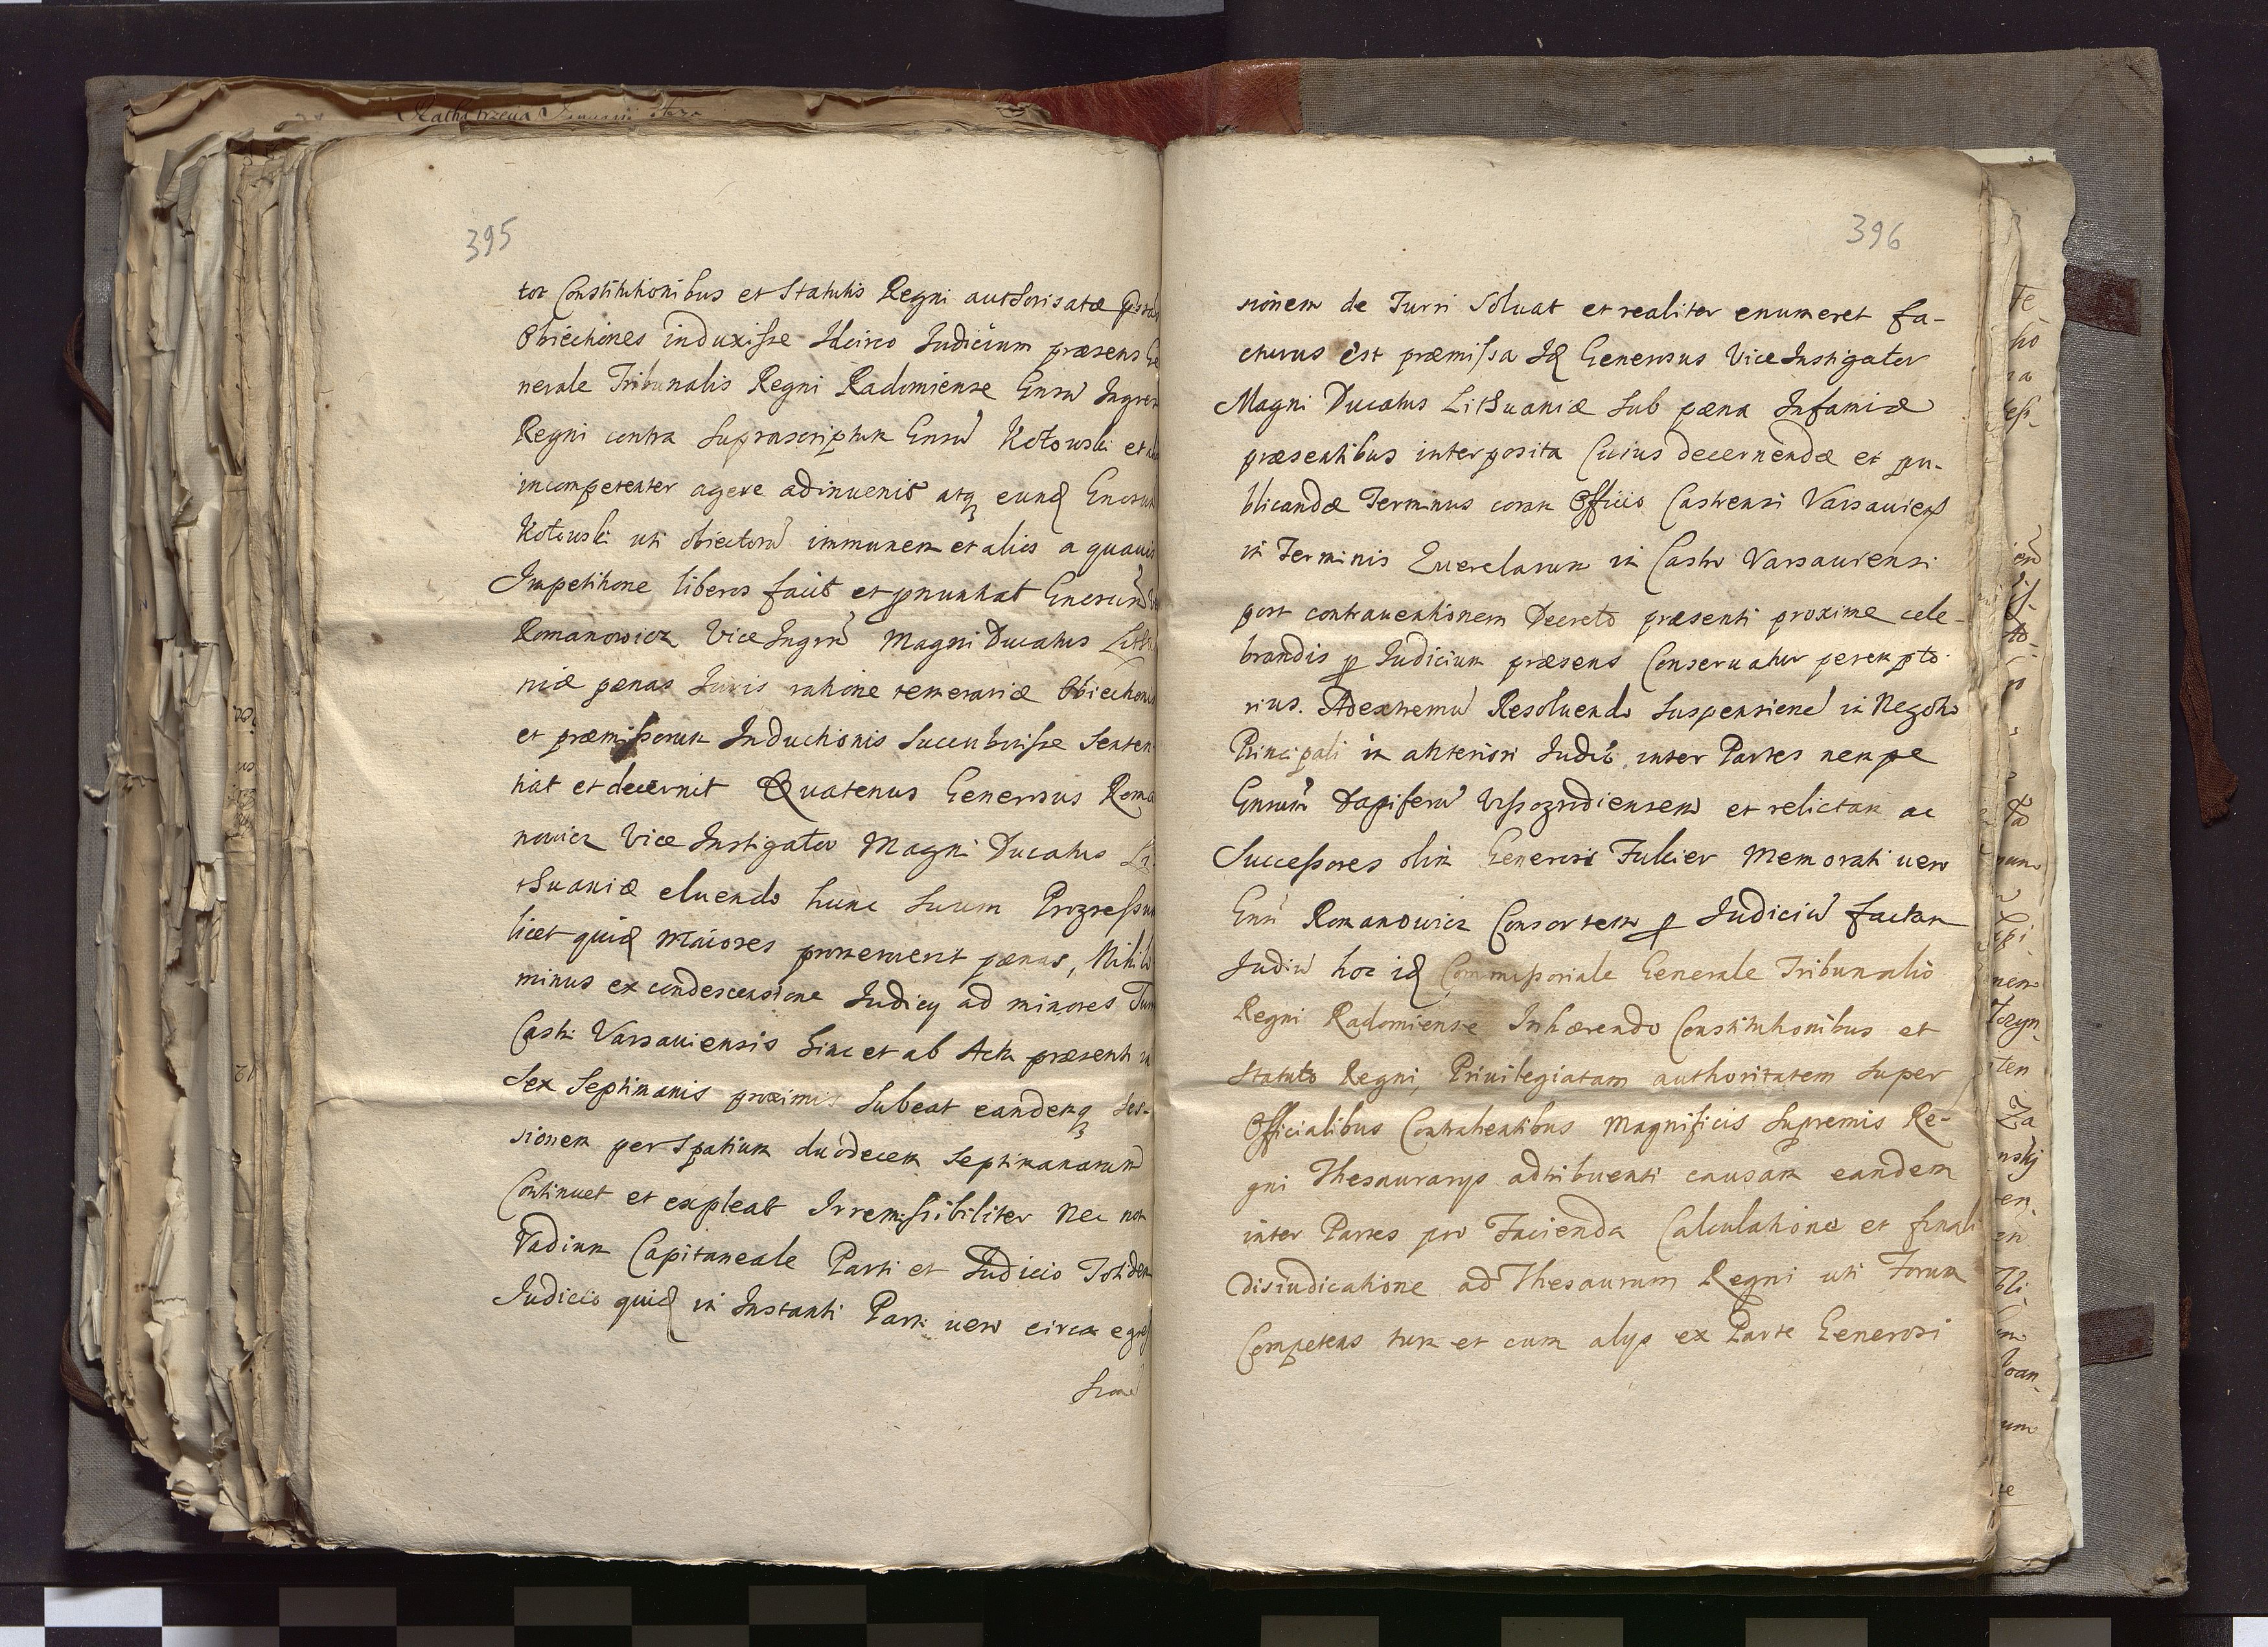 395
tot Constitutionibus et Statutis Regni authorisatæ
Obiectiones induxisse Idcirco Judicium præsens Ge
nerale Tribunalis Regni Radomiense Gnrsū
Regni contra Suprascriptum Gnrsū Kotowski et
incompetenter agere adinuenit atq eund Gnerosum
Kotowski uti obiectorū immunem et alios a quauis
Impetitione liberos facit et pnuntiat Gnerosum
Romanowicz Vice Ingrem Magni Ducatus Lithu
niæ pænas Juris ratione temerariæ Obiectionis
et præmissorum Inductionis Succubuisse Senten
tiat et decernit Quatenus Generosus Roma
nowicz Vice Instigator Magni Ducatus Li
thuaniæ eluendo hunc Suum Progressum
licet quid Maiores promeruerit pænas, Nihilo
minus ex condescensione Judicy ad minores Turri
Castri Varsauiensis hinc et ab Actu præsenti in
Sex Septimanis proximis Subeat eandemq Ses-
sionem per Spatium duodecem Septimanarum
Continuet et expleat Irremissibiliter Nec non
Vadium Capitaneale Parti et Judicio Totidem
Judicio quid in Instanti Parti uero circa egres
sione
396
sionem de Turri Soluat et realiter enumeret fa-
cturus est præmissa Id Generosus Vice Instigator
Magni Ducatus Lithuaniæ Sub pæna Infamiæ
præsentibus interposita Cuius decernendæ et pu-
blicandæ Terminus coram Officio Castrensi Varsauiens
in Terminis Querelarum in Castro Varsauiensi
post contrauentionem Decreto præsenti proxime cele-
brandis p Judicium præsens Conseruatur perempto-
rius. Adextremū Resoluendo Suspensionē in Negotio
Principali in anteriori Judic. inter Partes nempe
Gnrsum Dapiferū Vissogrodiensem et relictam ac
Successores olim Generosi Fulcier Memorati uero
Gnri Romanowicz Consortem p Judiciū factam
Judiū hoc id Commissoriale Generale Tribunalis
Regni Radomiense Inhærendo Constitutionibus et
Statuto Regni, Priuilegiatam authoritatem Super
Officialibus Contrahentibus Magnificis Supremis Re-
gni Thesaurarys adtribuenti causam eandem
inter Partes pro Facienda Calculatione et finali
Disiudicatione ad Thesaurum Regni uti Forum
Competens tum et cum alys ex Parte Generosi